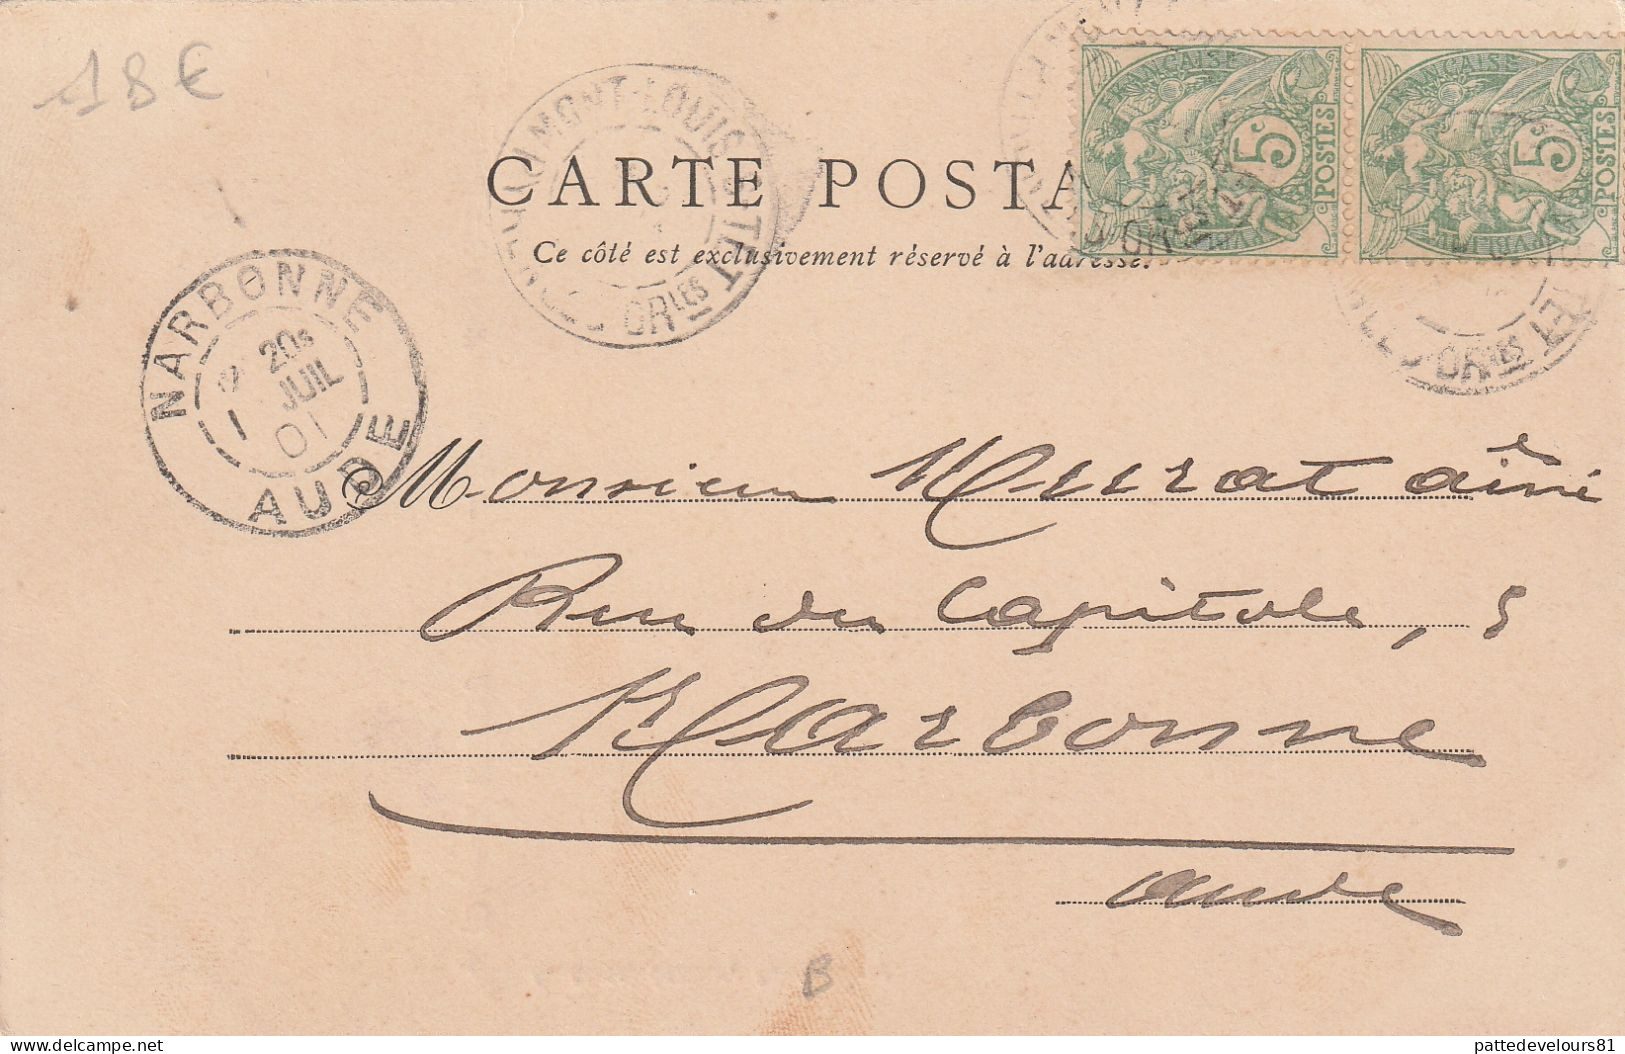 18 €
MONT-LOUIS
ORles
CARTE POSTA
Ce côté est exclusivement réservé à l'adresse.
FRANÇAISE
5c
POSTES
FRANÇAISE
5c
POSTES
ORles
NARBONNE
20s
JUIL
01
AUDE
Monsieur Murat aîné
Rue du Capitole, 5
Narbonne
Aude
B
delcampe.net
pattedevelours81